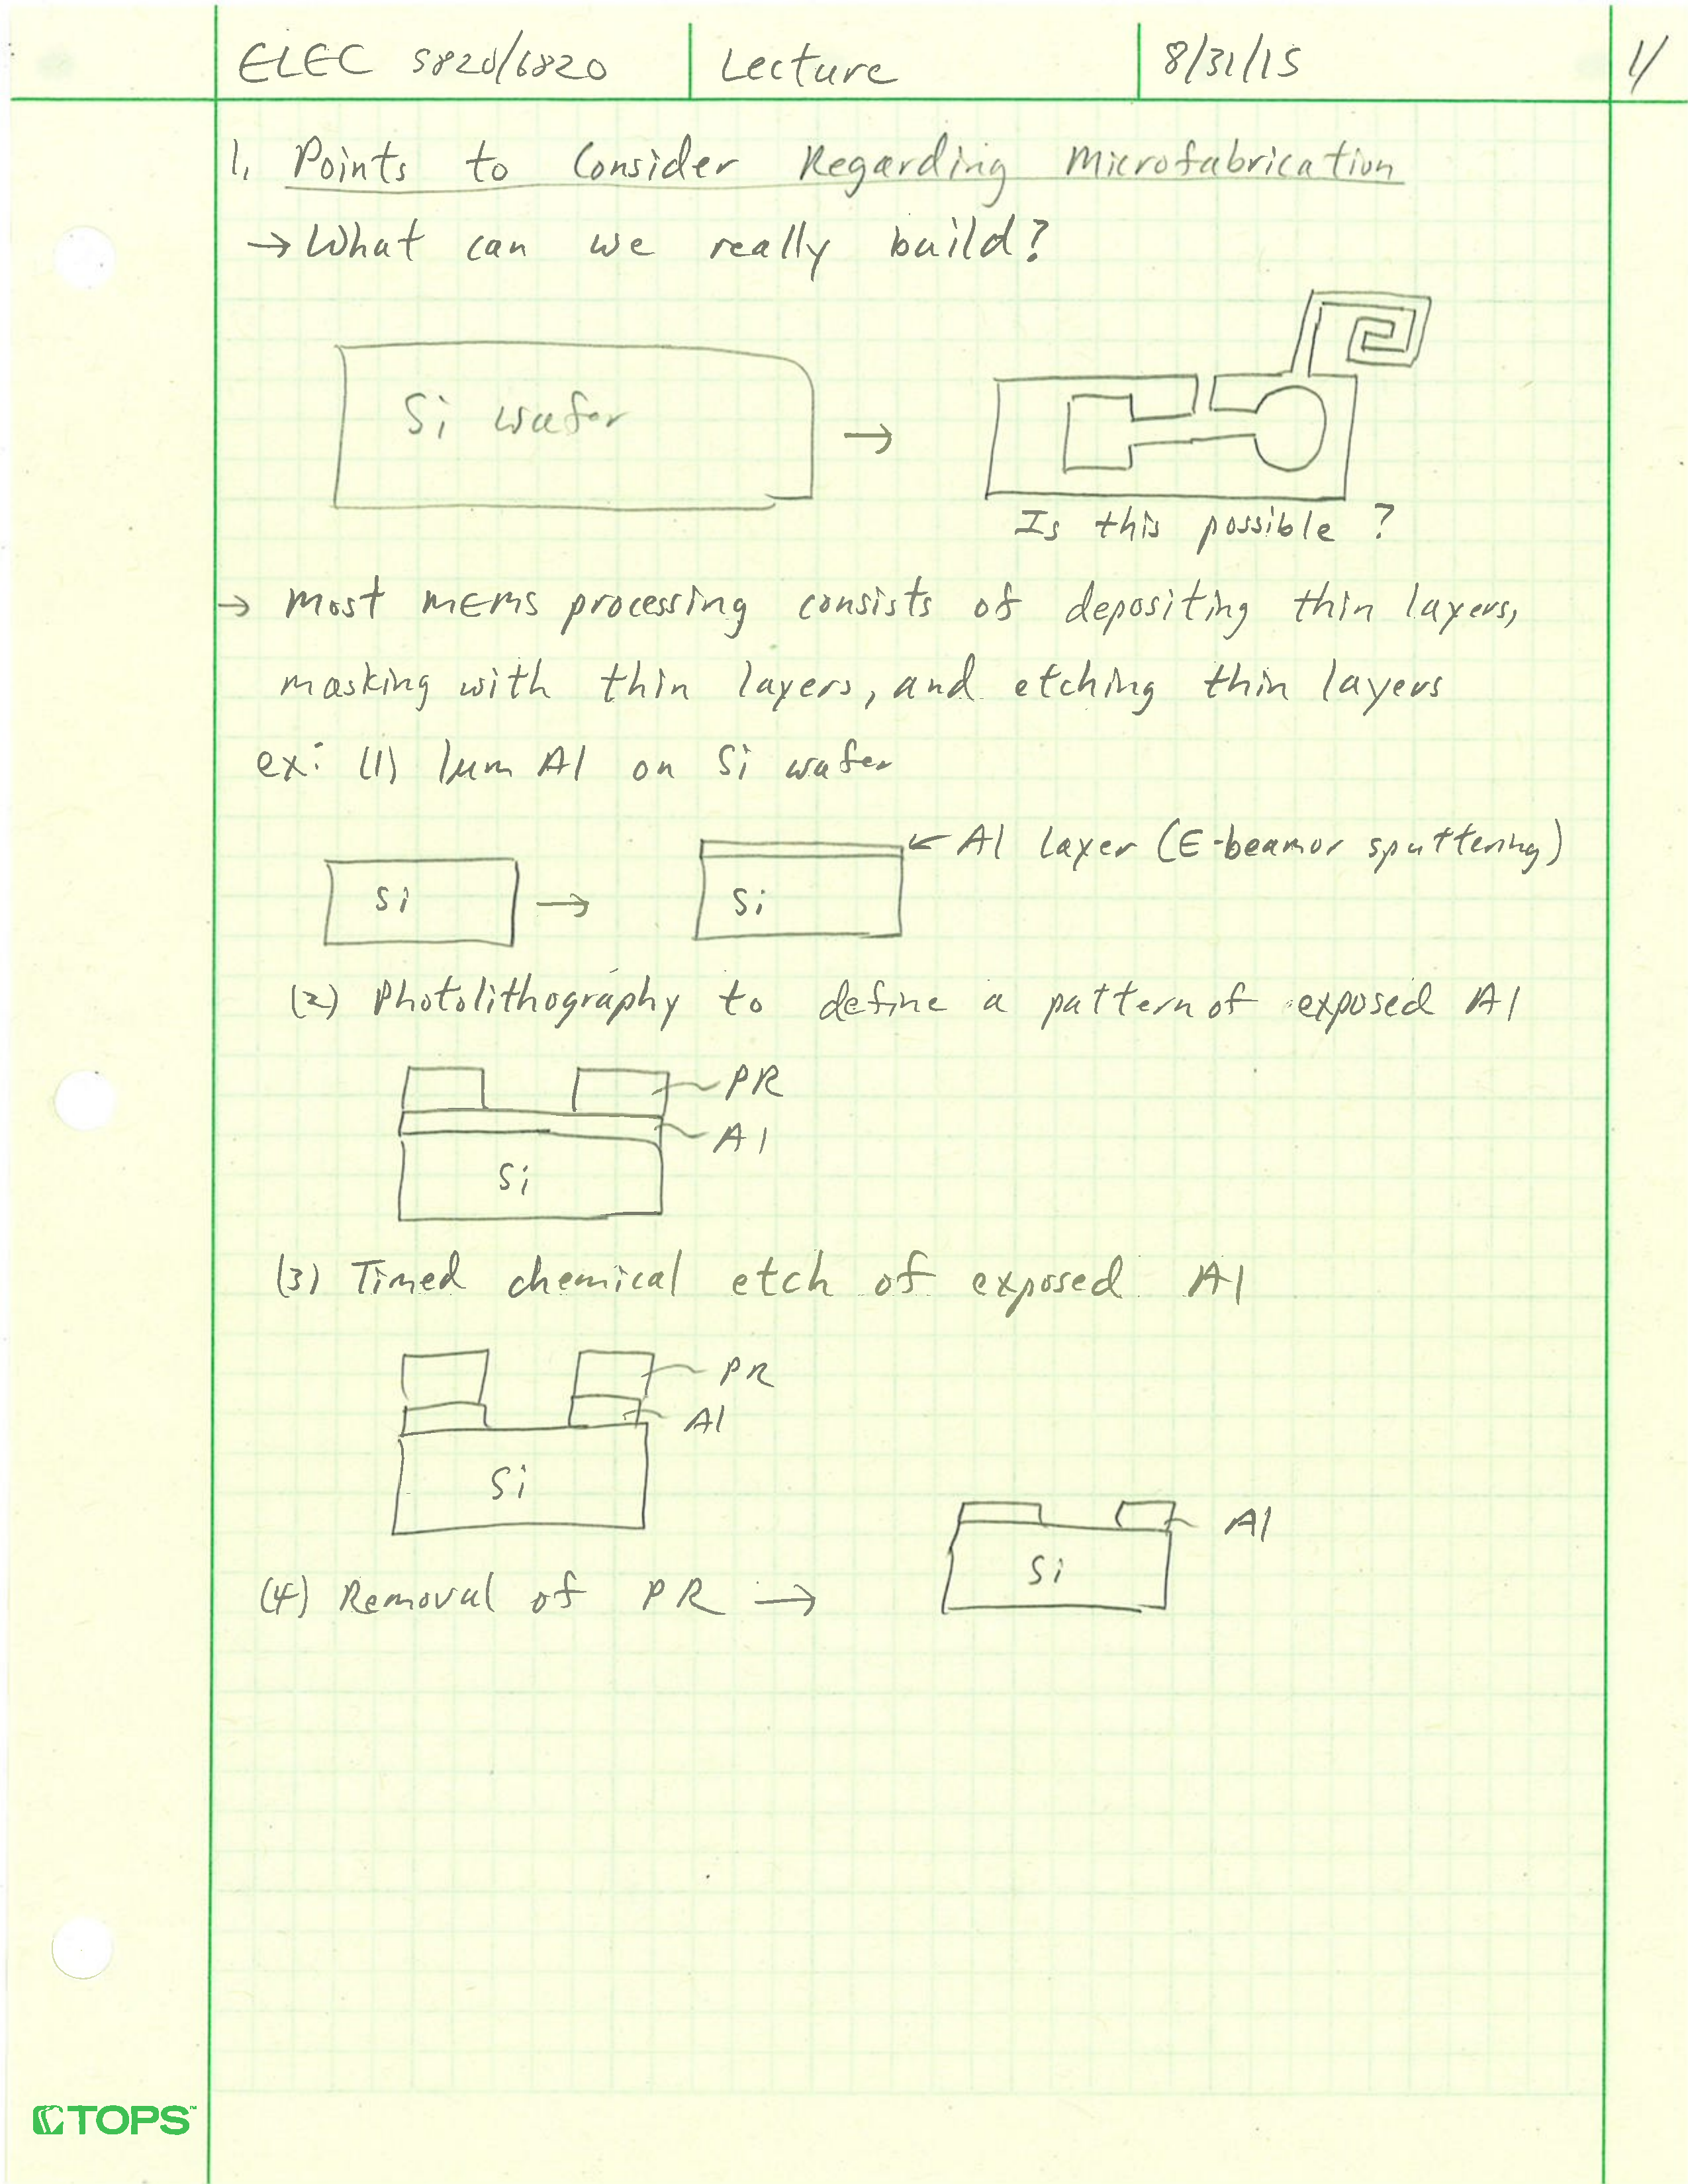 ELEC 5820/6820 Lecture 8/31/15 1/
1. Points to Consider Regarding Microfabrication
→ What can we really build?
Si wafer →
Is this possible?
→ Most MEMS processing consists of depositing thin layers,
masking with thin layers, and etching thin layers
ex: (1) 1μm Al on Si wafer
← Al layer (E-beam or sputtering)
Si → Si
(2) Photolithography to define a pattern of exposed Al
PR
Al
Si
(3) Timed chemical etch of exposed Al
PR
Al
Si
Al
Si
(4) Removal of PR →
TOPS™